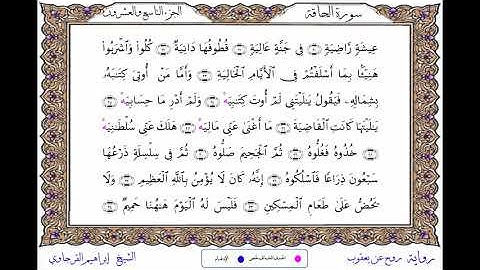 سورة الحاقة
الجزء التاسع والعشرون
عِيشَةٍ رَّاضِيَةٍ ۝ فِي جَنَّةٍ عَالِيَةٍ ۝ قُطُوفُهَا دَانِيَةٌ ۝ كُلُوا۟ وَٱشْرَبُوا۟
هَنِيٓـًٔۢا بِمَآ أَسْلَفْتُمْ فِي ٱلْأَيَّامِ ٱلْخَالِيَةِ ۝ وَأَمَّا مَنْ أُوتِيَ كِتَٰبَهُۥ
بِشِمَالِهِۦ فَيَقُولُ يَٰلَيْتَنِي لَمْ أُوتَ كِتَٰبِيَهْ ۝ وَلَمْ أَدْرِ مَا حِسَابِيَهْ ۝
يَٰلَيْتَهَا كَانَتِ ٱلْقَاضِيَةَ ۝ مَآ أَغْنَىٰ عَنِّي مَالِيَهْ ۝ هَلَكَ عَنِّي سُلْطَٰنِيَهْ
۝ خُذُوهُ فَغُلُّوهُ ۝ ثُمَّ ٱلْجَحِيمَ صَلُّوهُ ۝ ثُمَّ فِي سِلْسِلَةٍ ذَرْعُهَا
سَبْعُونَ ذِرَاعًا فَٱسْلُكُوهُ ۝ إِنَّهُۥ كَانَ لَا يُؤْمِنُ بِٱللَّهِ ٱلْعَظِيمِ ۝ وَلَا
يَحُضُّ عَلَىٰ طَعَامِ ٱلْمِسْكِينِ ۝ فَلَيْسَ لَهُ ٱلْيَوْمَ هَٰهُنَا حَمِيمٌ ۝
رواية: روح عن يعقوب
الإدغام
الشيخ: إبراهيم الفرجاوي